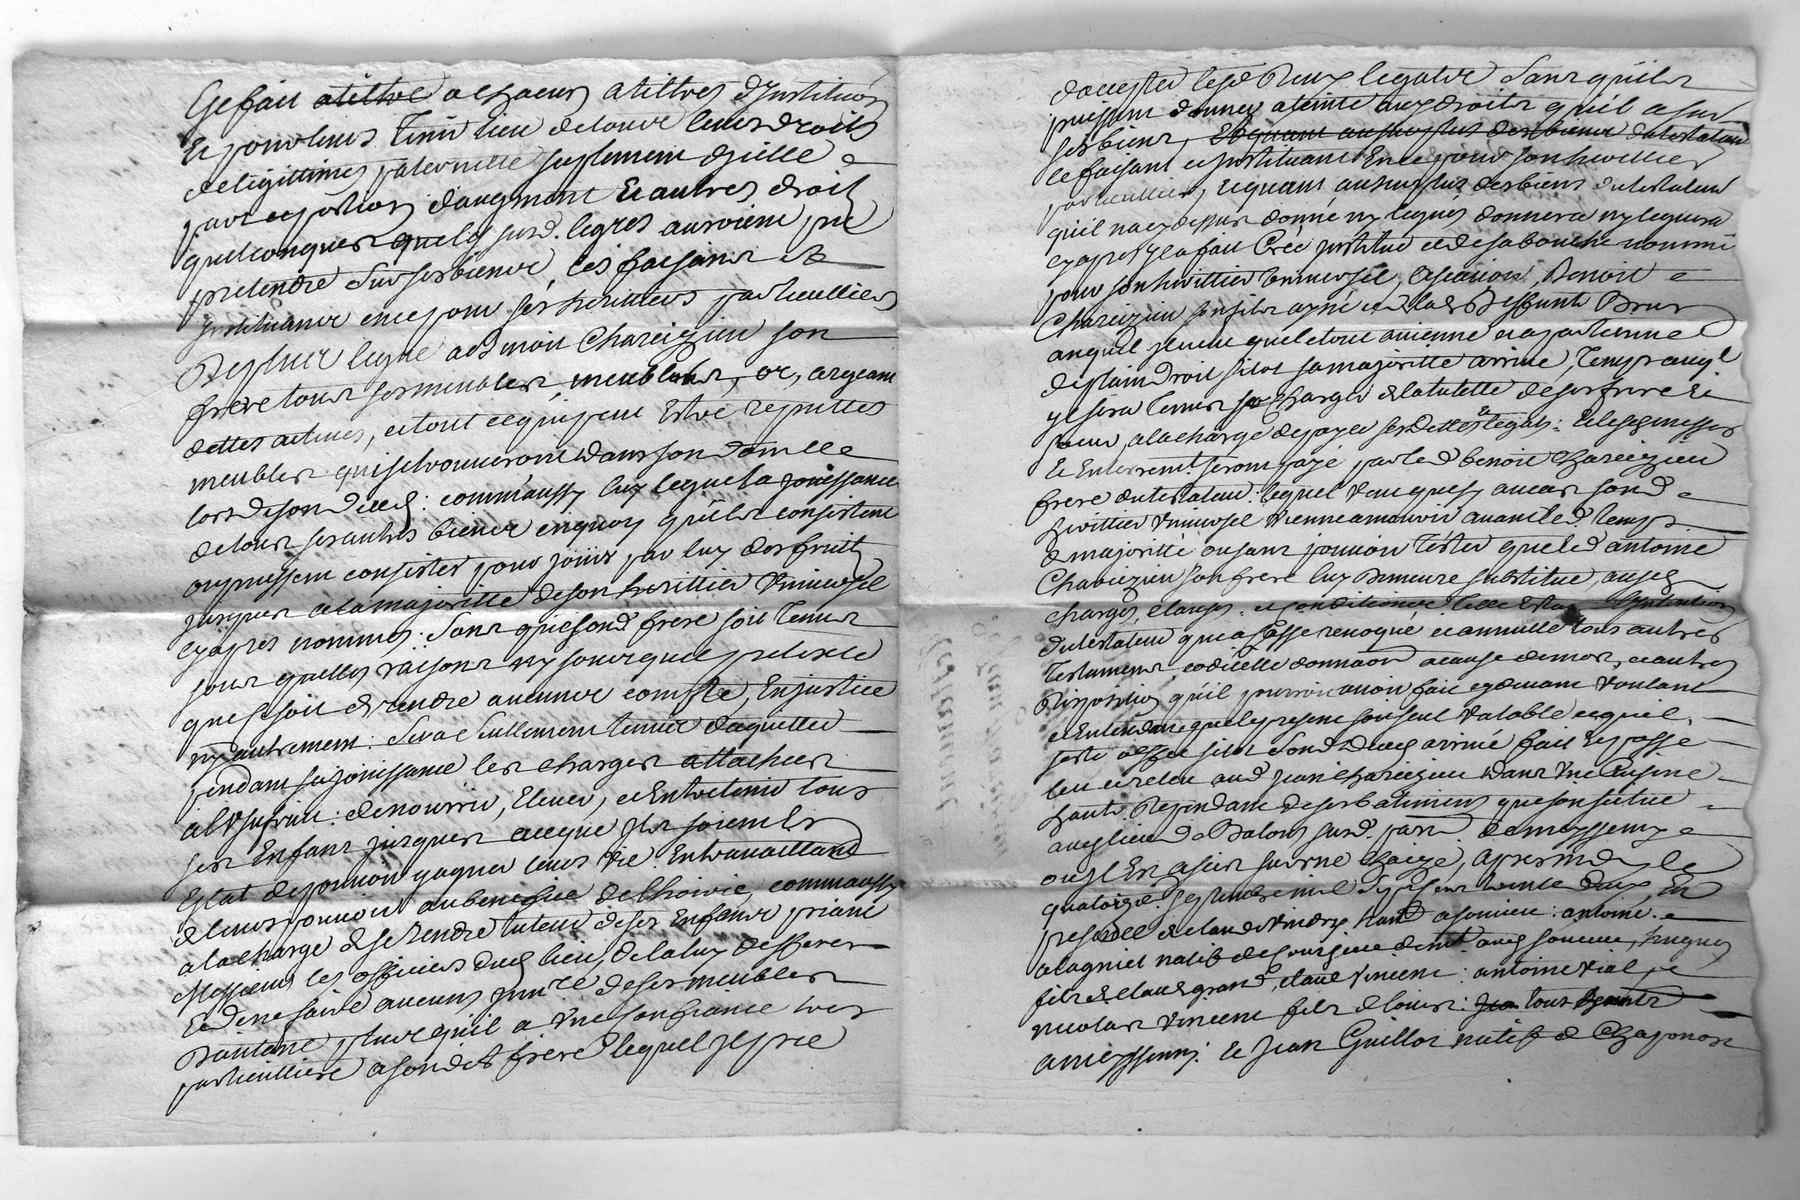 Ce fait a tiltre a chacun a tiltres d'institution
et pour leurs tenir lieu de tous leurs droits
de legittimes paternelle suplement d'icelle
part et portion d'augment et autres droits
quelconques que les susd. legués auroient pu
pretendre sur ses biens, les faisant et
instituant en ce pour ses heritiers particulliers
De plus legue a Chareizieu son
frere tous ses meubles, meublans, or, argeant
dettes actives, et tout ce qui peut estre reputtes
meubles qui se trouveront dans son domille
lors de son deces: comm'aussy luy legue la jouissance
de tous ses autres biens en quoy qu'ils consistent
ou puissent consister pour jouir par luy des fruits
jusques a la majoritté de son herittier universel
cy apres nommés: sans que sond. frere soit tenus
sous quelles raisons ny sous quel pretexte
que se soit de rendre aucunne compte, en justice
ny autrement: sera seullement tenus d'aquitter
pendant sa jouissance les charges attachées
a l'usufruit: de nourrir, elever, et entretenir tous
ses enfans jusques a ce que ils soient en
estat de pouvoir gagner leurs vie en travaillant
de leurs pouvoir au benefice de l'hoirie, comm'aussy
a la charge de se rendre tuteur de ses enfans priant
Messieurs les officiers dud. lieu de la luy defferer
et de ne faire aucuns de ses meubles
d'autant plus qu'il a une confiance tres
particulliere a son dit frere lequel il prie
d'accepter lesd. deux legative sans qu'ils
puissent donner ateinte aux droits qu'il a sur
ses biens, et quant au surplus des biens du testateur
le faisant et instituant en ce pour son herittier
particullier, et quant au surplus des biens du testateur
qu'il n'a cy dessus donné ny legués donnera ny leguera
cy apres il a fait créé institué et de sa bouche nommé
pour son herittier universel, Benoit
Chareizieu son fils ayné et de lad. deffunte Brun
auquel il veut que le tout avienne et apartienne
de plain droit sitot sa majoritté arrivé, temps auql.
il sera tenus se charger de la tutelle de ses frere et
seur, a la charge de payer ses dettes et legats: et les messes
et enterrement seront payé par led. benoit Chareizieu
frere du testateur: lequel veut que sy au cas sond.
herittier universel vienne a mourir avant led. temps
de majoritté ou sans pouvoir tester que led. antoine
Chareizieu son frere luy demeure substitué, aux
charges, clauses et conditionne telle est la
du testateur que a cassé revoqué et annulle tous autres
testamens, codicille donnaon a cause de mort, et autres
disposition qu'il pourroit avoir fait cy devant voulant
et entendant que le present soit seul valable et qu'il
sorte effet sitot sond. deces arrivé fait et passé
leu et releu aud. Jean Chareizieu dans une cuisine
haute dependant de ses batimens que son scitue
aux lieu de Balons susd. parr. de messimy
ou il est assis sur une chaize, apres midy le
quatorze septembre mil sept cens trente deux en
presence de claude a soucieu: antoine
alagniet natif de dem.t aud. soucieu, hugues
fils de claude grand, claude vincent: antoine vial, et
nicolas vincent fils de louis: tous
a messimy: et Jean Guillot natif de Chaponost